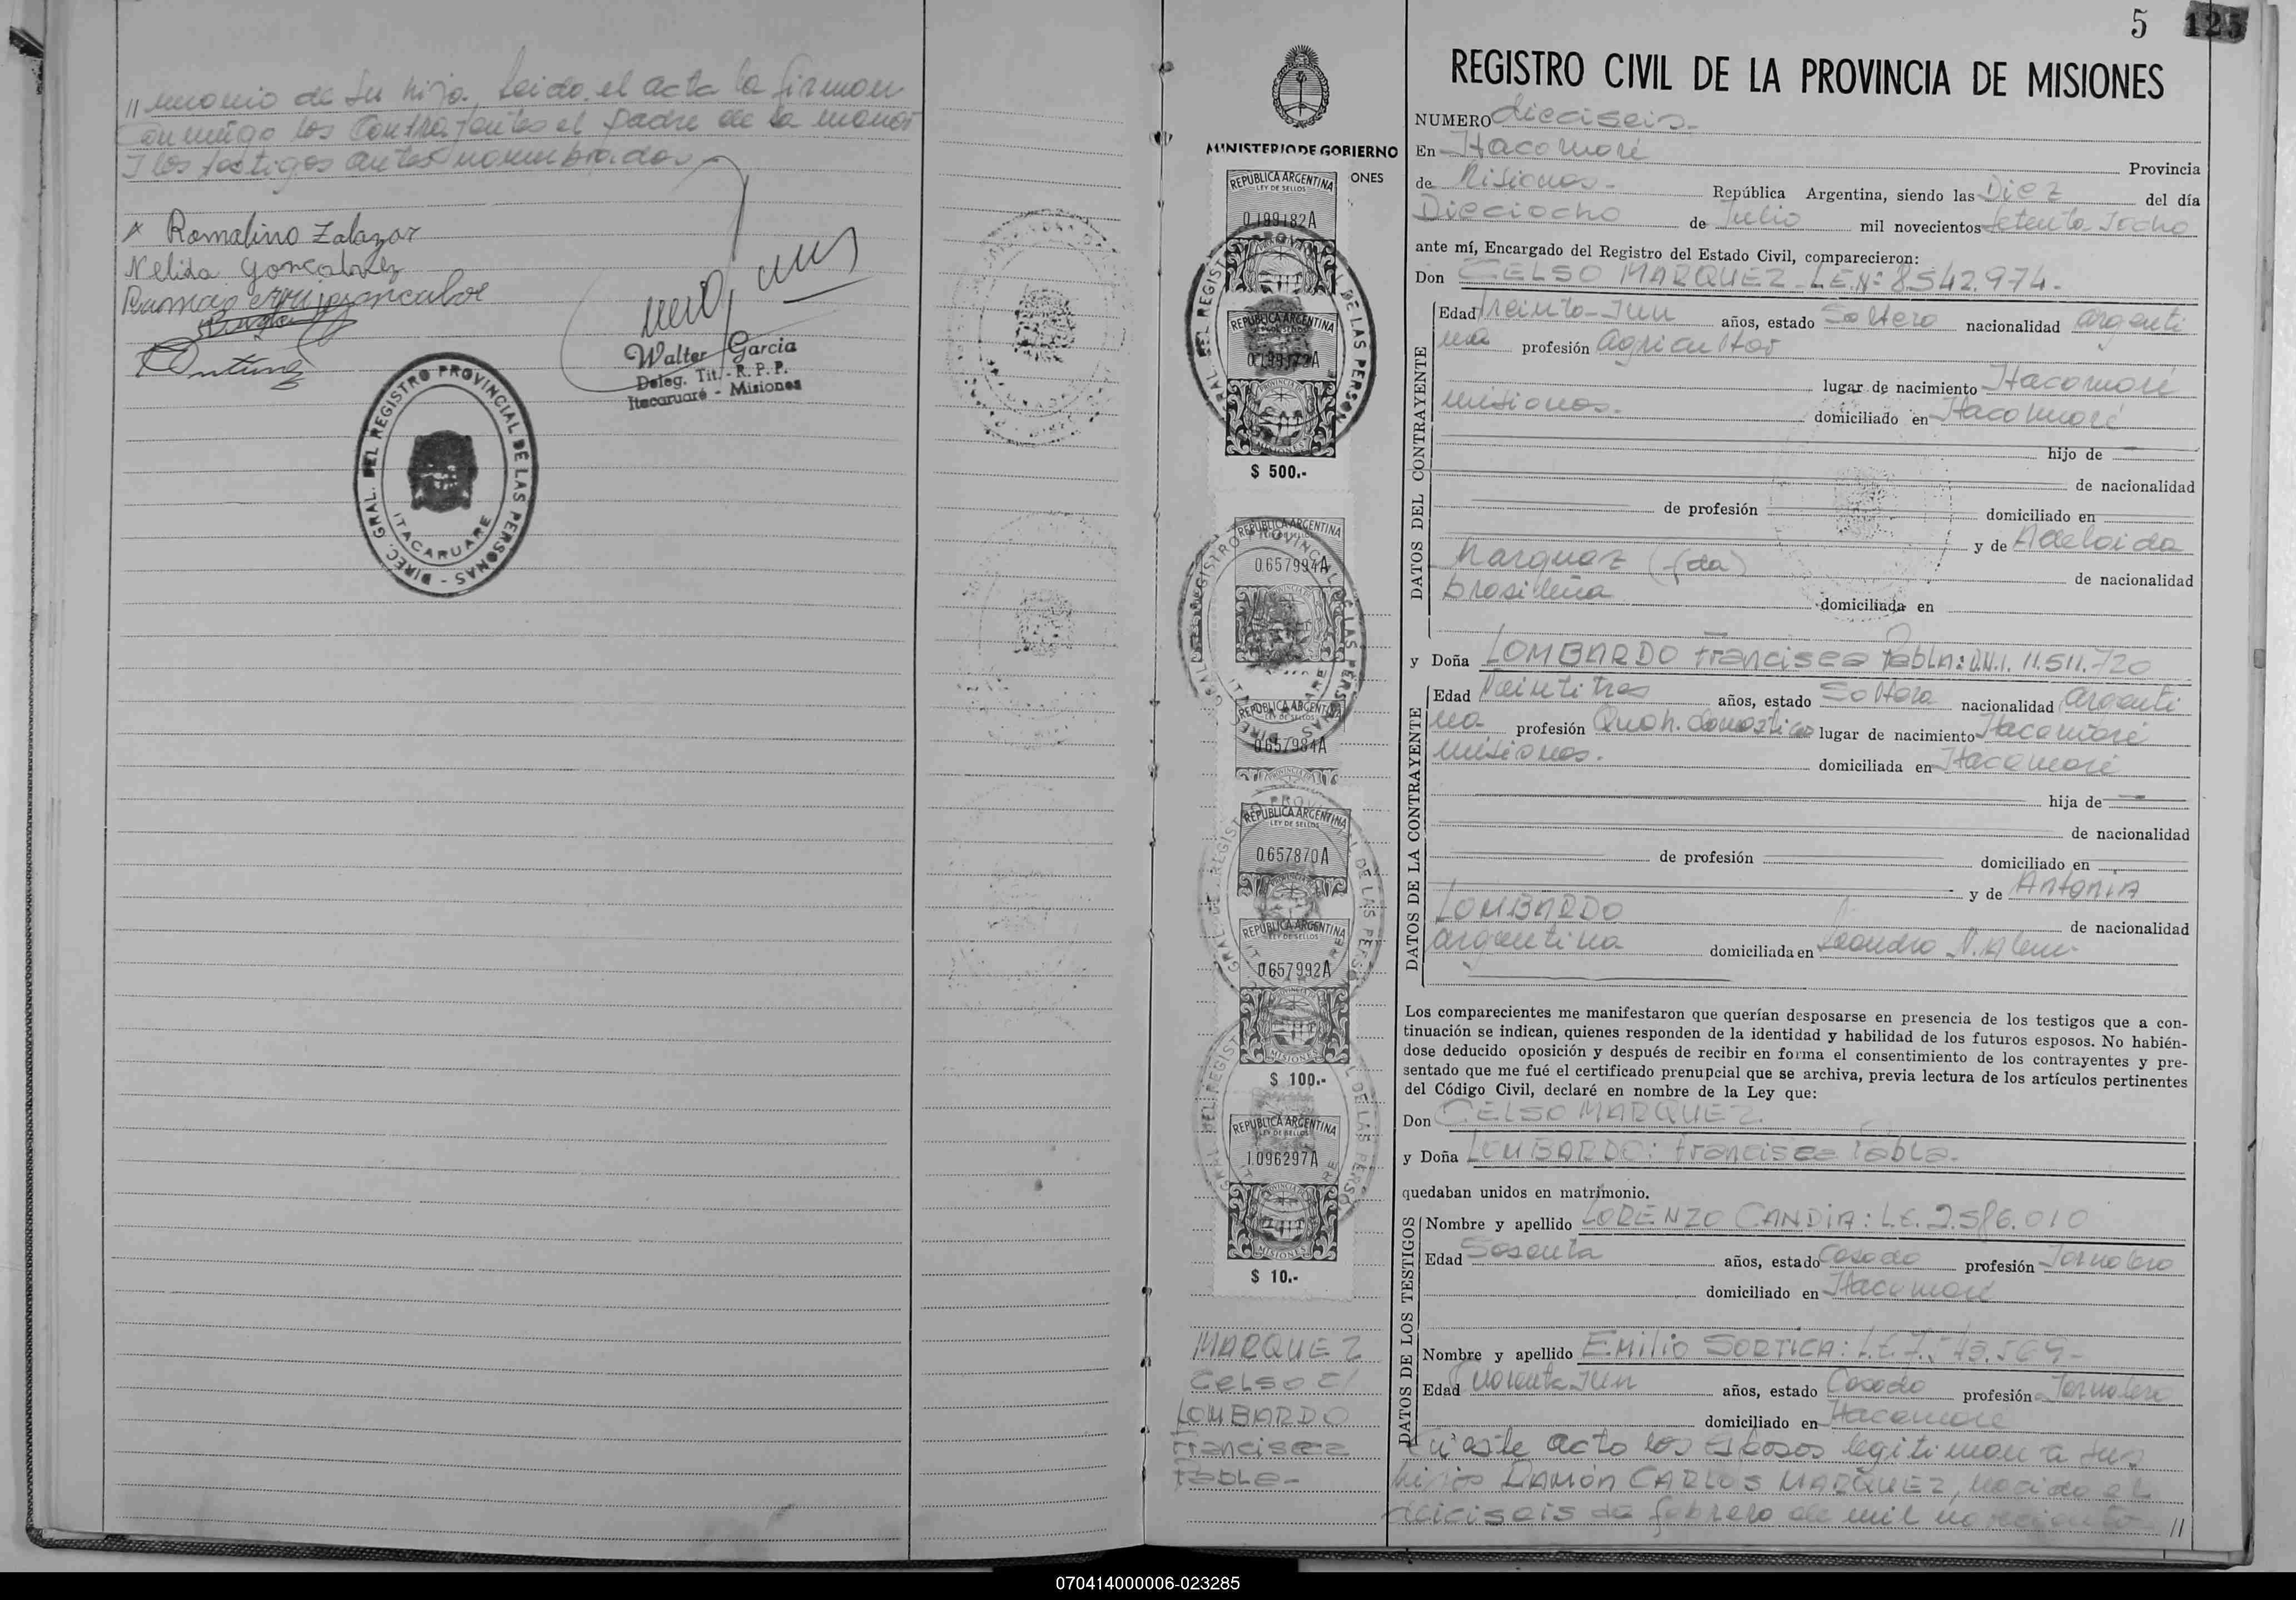 // monio de su hijo. Leido el acta la firman
conmigo los contratantes el padre de la menor
y los testigos antes nombrados
x Romalino Zalazar
Nelida Goncalvez
Walter Garcia
Deleg. Tit. - R. P. P.
Itacaruaré - Misiones
DIREC. GRAL. DEL REGISTRO PROVINCIAL DE LAS PERSONAS -
ITACARUARE
MINISTERIO DE GOBIERNO
ONES
REPUBLICA ARGENTINA
LEY DE SELLOS
0199182A
REPUBLICA ARGENTINA
$ 500.-
REPUBLICA ARGENTINA
0657994A
REPUBLICA ARGENTINA
0657984A
REPUBLICA ARGENTINA
LEY DE SELLOS
0657870A
REPUBLICA ARGENTINA
LEY DE SELLOS
0657992A
MISIONES
$ 100.-
REPUBLICA ARGENTINA
LEY DE SELLOS
1096297A
MISIONES
$ 10.-
MARQUEZ
Celso c/
LOMBARDO
Francisca
Pabla-
5 125
REGISTRO CIVIL DE LA PROVINCIA DE MISIONES
NUMERO dieciseis-
En Itacaruaré Provincia
de Misiones- República Argentina, siendo las Diez del día
Dieciocho de Julio mil novecientos setenta y ocho
ante mí, Encargado del Registro del Estado Civil, comparecieron:
Don CELSO MARQUEZ. L.E.Nº 8.542.974.-
DATOS DEL CONTRAYENTE
Edad treinta y un años, estado Soltero nacionalidad argenti
na profesión agricultor
lugar de nacimiento Itacaruaré
misiones. domiciliado en Itacaruaré
hijo de
de nacionalidad
de profesión domiciliado en
y de Adelaida
Marquez (fda) de nacionalidad
brasileña domiciliada en
y Doña LOMBARDO Francisca Pabla: D.N.I. 11.511.720
DATOS DE LA CONTRAYENTE
Edad Veintitres años, estado Soltera nacionalidad argenti
na profesión Queh. domestico lugar de nacimiento Itacaruaré
misiones. domiciliada en Itacaruaré
hija de
de nacionalidad
de profesión domiciliado en
y de Antonia
LOMBARDO de nacionalidad
argentina domiciliada en Leandro N. Alem
Los comparecientes me manifestaron que querían desposarse en presencia de los testigos que a con-
tinuación se indican, quienes responden de la identidad y habilidad de los futuros esposos. No habién-
dose deducido oposición y después de recibir en forma el consentimiento de los contrayentes y pre-
sentado que me fué el certificado prenupcial que se archiva, previa lectura de los artículos pertinentes
del Código Civil, declaré en nombre de la Ley que:
Don CELSO MARQUEZ.
y Doña LOMBARDO: Francisca Pabla.
quedaban unidos en matrimonio.
DATOS DE LOS TESTIGOS
Nombre y apellido LORENZO CANDIA: L.E. 2.586.010
Edad Sesenta años, estado Casado profesión Jornalero
domiciliado en Itacaruaré
Nombre y apellido Emilio SORTICA: L.E.
Edad Cuarenta y un años, estado Casado profesión Jornalero
domiciliado en Itacaruaré
En este acto los esposos legitiman a sus
hijos RAMÓN CARLOS MARQUEZ, nacido el
dieciseis de febrero de mil novecientos //
070414000006-023285